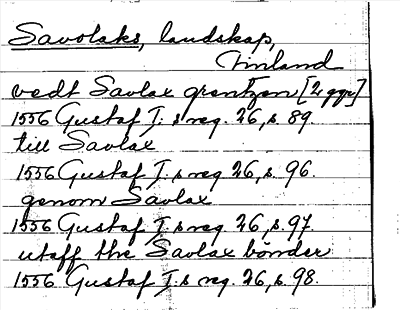 Savolaks, landskap,
Finland
vedt Savlax grentzen [2 ggr]
1556 Gustaf I:s reg. 26, s. 89.
till Savlax
1556 Gustaf I:s reg. 26, s. 96.
genom Savlax
1556 Gustaf I:s reg. 26, s. 97.
utaff the Savlax bönder
1556 Gustaf I:s reg. 26, s. 98.